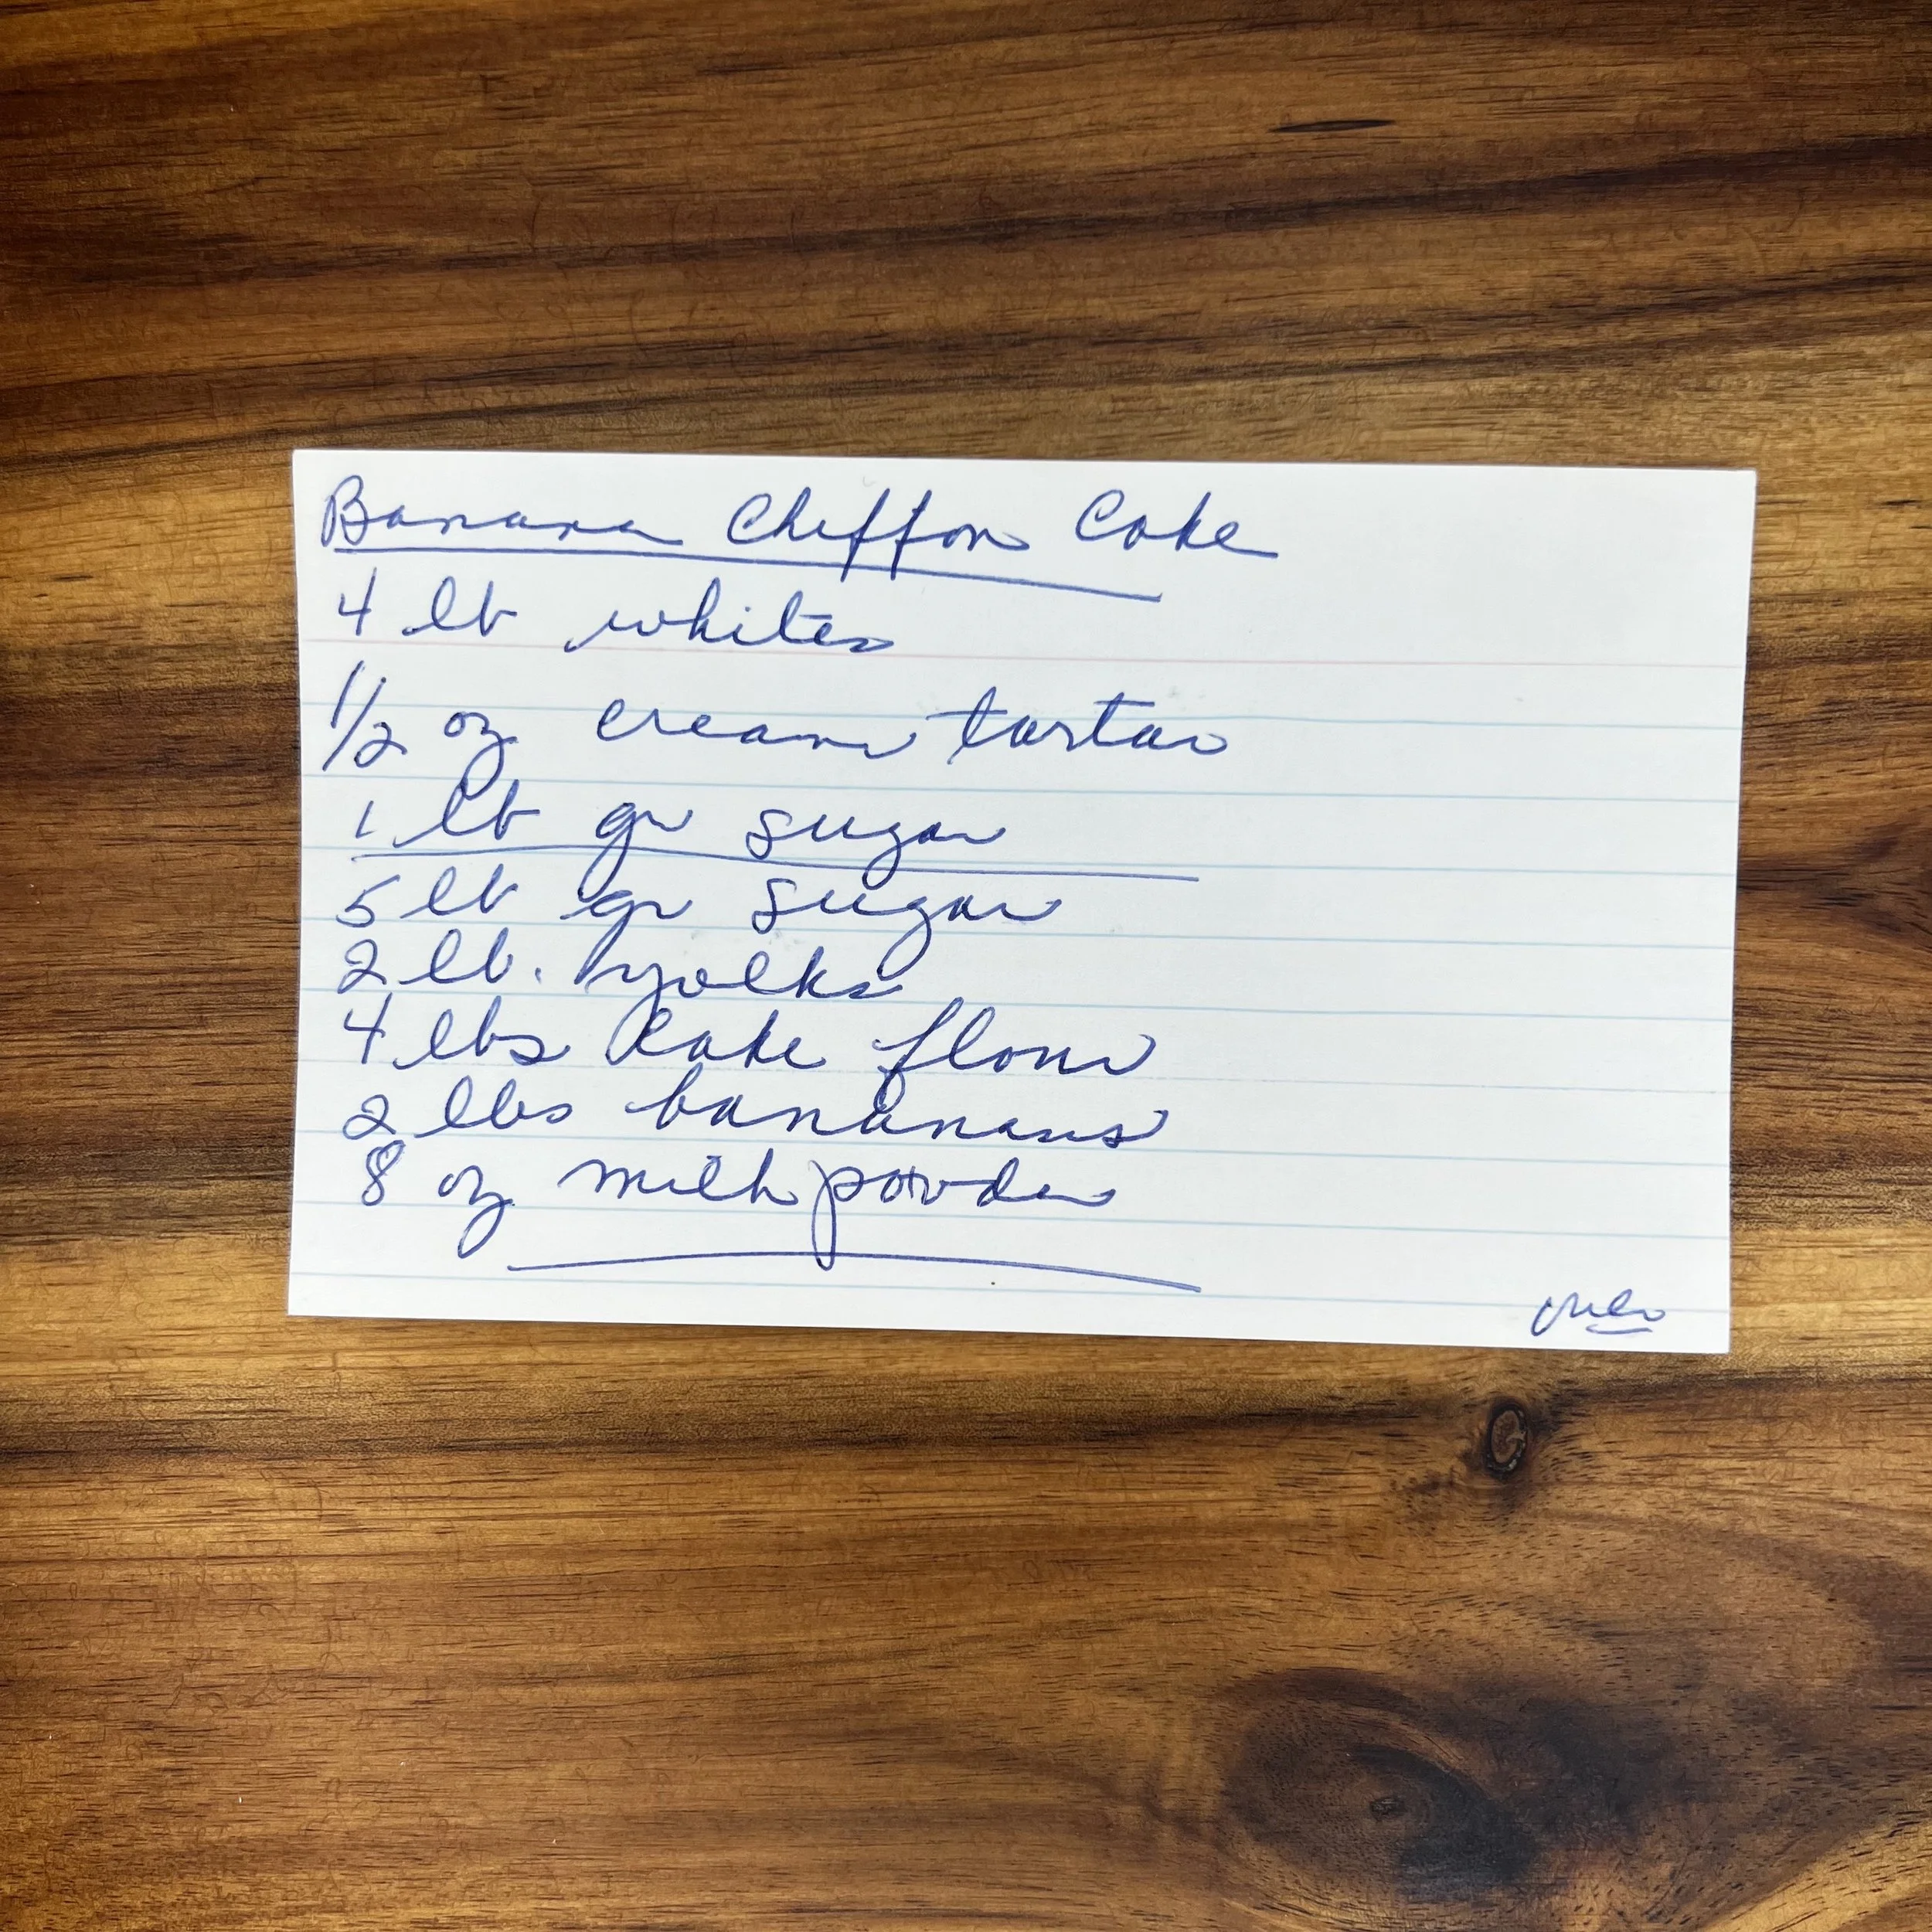 Banana Chiffon Cake
4 lb whites
1/2 oz cream tartar
1 lb gr sugar
5 lb gr sugar
2 lb. yolks
4 lbs cake flour
2 lbs bananas
8 oz milk powder
over